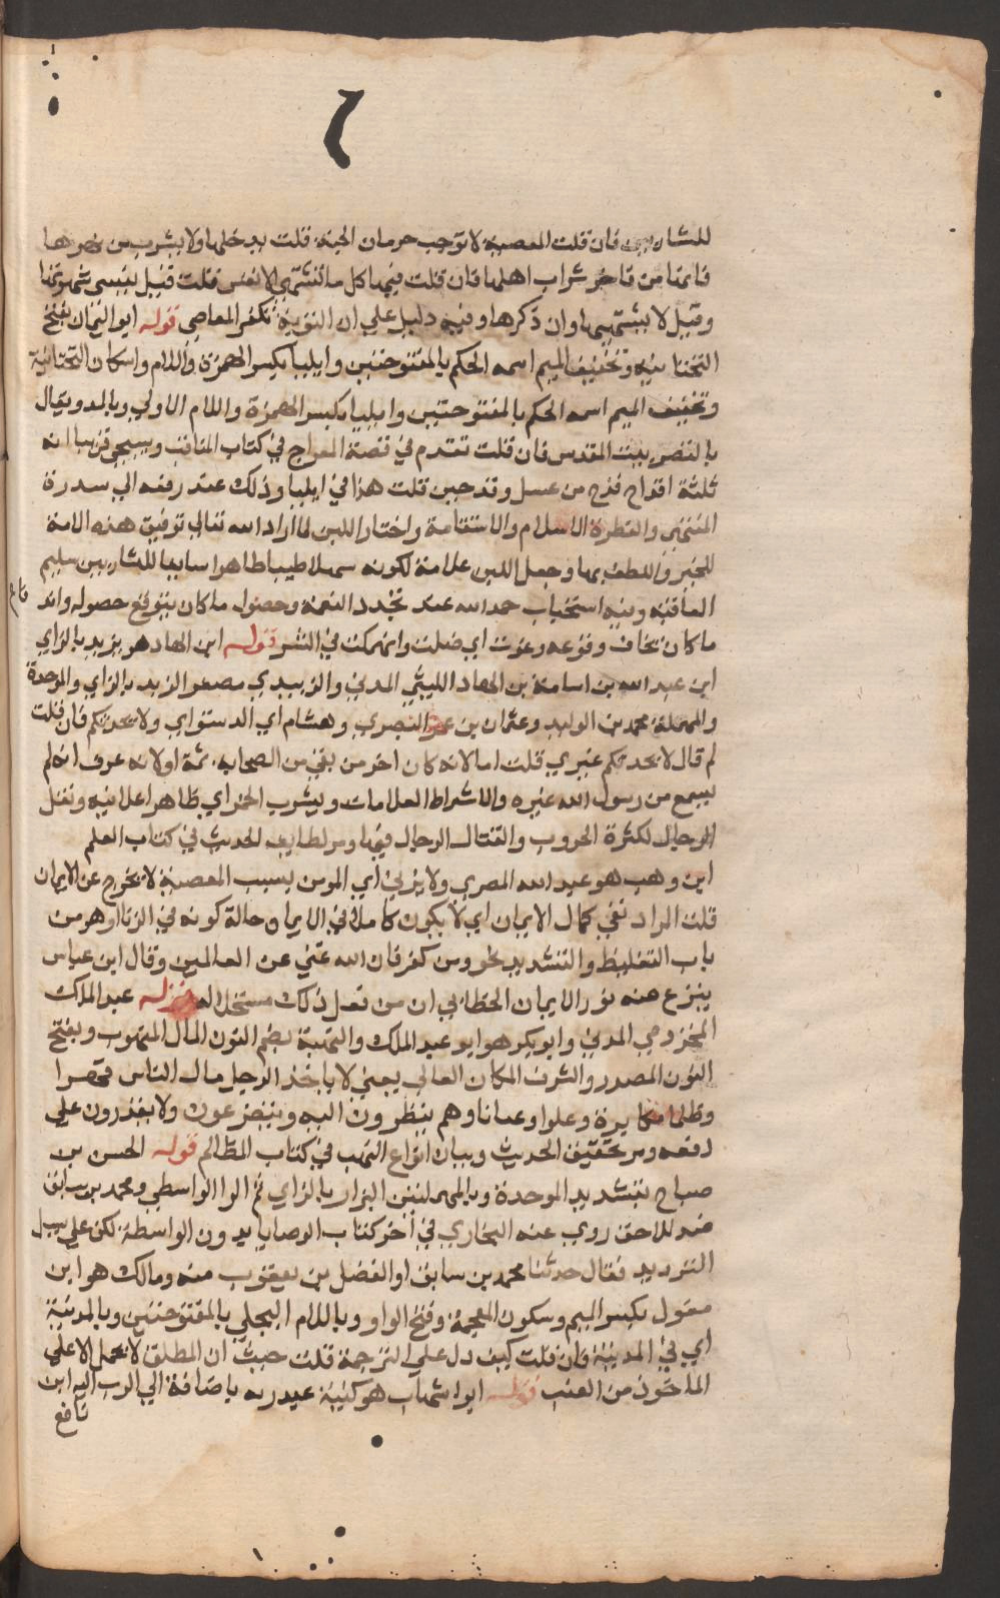 للشاربين فان قلت المعصية لا توجب حرمان الجنة قلت يدخلها ولا يشرب من خمرها
فانها من فاخر شراب اهلها فان قلت فيها كل ما تشتهي الانفس قلت قيل ينسى شهوتها
وقيل لا يشتهيها وان ذكرها وفيه دليل على ان التوبة تكفر المعاصي قوله ابو اليمان بفتح
التحتانية وتخفيف الميم اسمه الحكم بالمفتوحتين وايليا بكسر الهمزة واللام واسكان التحتانية
وتخفيف الميم اسمه الحكم بالمفتوحتين وايليا بكسر الهمزة واللام الاولى وبالمد ويقال
بالقصر بيت المقدس فان قلت تقدم في قصة المعراج في كتاب المناقب وسيجي قريبا انه
ثلثة اقداح قدح من عسل وقدحين قلت هذا في ايليا وذلك عند رفعه الى سدرة
المنتهى والفطرة الاسلام والاستقامة واختار اللبن لما اراد الله تعالى توفيق هذه الامة
للخير واللطف بها وجعل اللبن علامة لكونه سهلا طيبا طاهرا سايغا للشاربين سليم
العاقبة وفيه استحباب حمد الله عند تجدد النعمة وحصول ما كان يتوقع حصوله واند
فاع
ما كان يخاف وقوعه وغوت اي ضلت وانهمكت في الشر قوله ابن الهاد هو يزيد بالزاي
ابن عبد الله بن اسامة بن الهاد الليثي المدني والزبيدي مصغر الزبد بالزاي والموحدة
والمهملة محمد بن الوليد وعثمان بن عمر البصري وهشام اي الدستواي ولا يحدثكم فان قلت
لم قال لا يحدثكم غيري قلت اما لانه كان اخر من بقي من الصحابة ثمة او لانه عرف انه لم
يسمع من رسول الله غيره والاشراط العلامات ويشرب الخمر اي ظاهرا علانية ونقل
الرجال لكثرة الحروب والقتال الرجال فيها ومر لطايف الحديث في كتاب العلم
ابن وهب هو عبد الله المصري ولا يزني اي المومن بسبب المعصية لا يخرج عن الايمان
قلت المراد نفي كمال الايمان اي لا يكون كاملا في الايمان حالة كونه في الزنا او هو من
باب التغليظ والتشديد نحو ومن كفر فان الله غني عن العالمين وقال ابن عباس
ينزع منه نور الايمان الخطابي ان من فعل ذلك مستحلا له قوله عبد الملك
المخزومي المدني وابو بكر هو ابو عبد الملك والنهبة بضم النون المال المنهوب وبفتح
النون المصدر والشرف المكان العالي يعني لا ياخذ الرجل مال الناس قهرا
وظلما مكابرة وعلوا وعيانا وهم ينظرون اليه ويتضرعون ولا يقدرون على
دفعه ومر تحقيق الحديث وبيان انواع النهب في كتاب المظالم قوله الحسن بن
صباح بتشديد الموحدة وبالمهملتين البزار بالزاي ثم الرا الواسطي ومحمد بن سابق
ضد للاحق روى عنه البخاري في اخر كتاب الوصايا بدون الواسطة لكن على سبيل
الترديد فقال حدثنا محمد بن سابق او الفضل بن يعقوب عنه ومالك هو ابن
مغول بكسر الميم وسكون المعجمة وفتح الواو وباللام البجلي بالمفتوحتين وبالمدينة
اي في المدينة فان قلت كيف دل على الترجمة قلت حيث ان المطلق لا يحمل الا على
الماخوذ من العنب قوله ابو اشهاب هو كنية عبد ربه باضافة الى الرب ابن
نافع